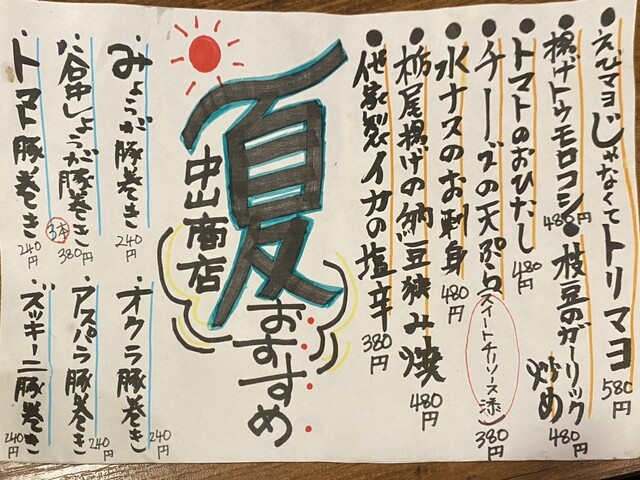 えびマヨじゃなくてトリマヨ 580円
揚げトウモロコシ 480円
枝豆のガーリック炒め 480円
トマトのおひたし 480円
チーズの天ぷら(スイートチリソース添) 380円
水ナスのお刺身 480円
栃尾揚げの納豆狭み焼 480円
他家製イカの塩辛 380円
夏
おすすめ
中山商店
みょうが豚巻き 240円
谷中しょうが豚巻き 3本 380円
トマト豚巻き 240円
オクラ豚巻き 240円
アスパラ豚巻き 240円
ズッキーニ豚巻き 240円